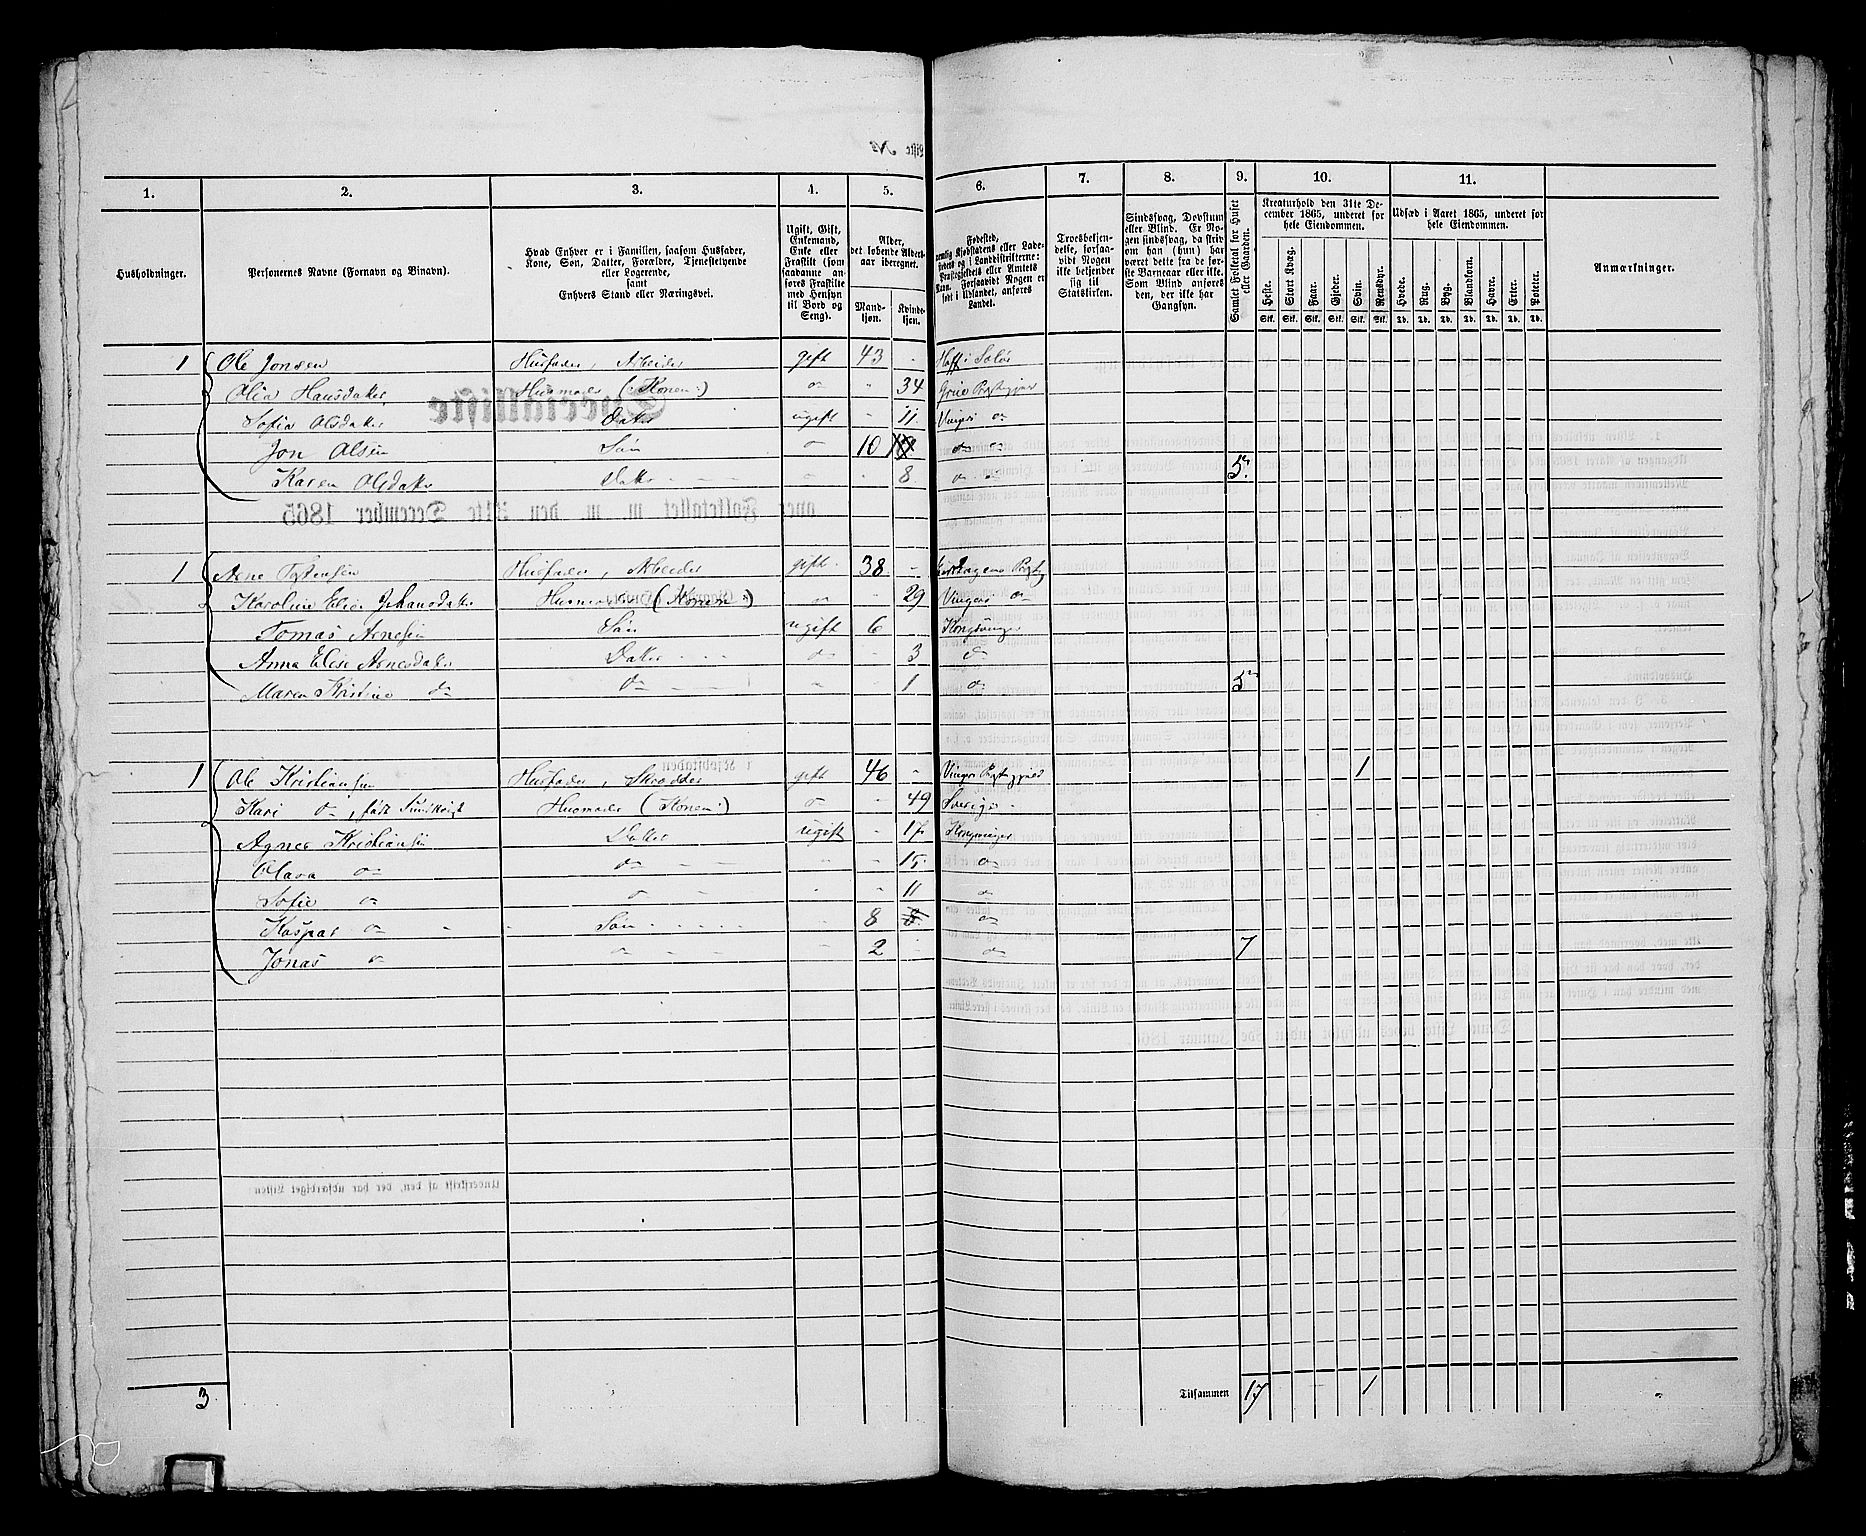 1. 2. 3. 4. 5. 6. 7. 8. 9. 10. 11.
Husholdninger.
Personernes Navne (Fornavn og Binavn).
Hvad Enhver er i Familien, saasom Husfader,
Kone, Søn, Datter, Forældre, Tjenestetyende
eller Logerende,
samt
Enhvers Stand eller Næringsvei.
Ugift, Gift,
Enkemand,
Enke eller
Fraskilt (som
saadanne an-
føres Fraskilte
med Hensyn
til Bord og
Seng).
Alder,
det løbende Alders-
aar iberegnet.
Mand-
kjøn.
Kvinde-
kjøn.
Fødested,
nemlig Kjøbstadens eller Lade-
stedets og i Landdistrikterne:
Præstegjeldets eller Amtets
Navn. Forsaavidt Nogen er
født i Udlandet, anføres
Landet.
Troesbekjen-
delse, forsaa-
vidt Nogen
ikke bekjender
sig til
Statskirken.
Sindssvag, Døvstum
eller Blind. Er No-
gen sindssvag, da skriv
om han (hun) har
været dette fra de før-
ste Barneaar eller ikke.
Som Blind anføres
den, der ikke har
Gangsyn.
Samlet Folketal for Huset
eller Gaarden.
Kreaturhold den 31te De-
cember 1865, underet for
hele Eiendommen.
Heste. Stort Kvæg. Faar. Gjeder. Svin. Rensdyr.
Stk. Stk. Stk. Stk. Stk. Stk.
Udsæd i Aaret 1865, underet for
hele Eiendommen.
Hvede. Rug. Byg. Blandkorn. Havre. Erter. Poteter.
Td. Td. Td. Td. Td. Td. Td.
Anmærkninger.
1 Ole Jonsen Husfader, Arbeider gift 43 - Hoff i Solør
Olia Hansdatter Husmoder (Konen:) do " 34 Grue Prstgjæl
Sofia Olsdatter Datter ugift - 11. Vinger do
Jon Olsen Søn do 10 do do
Karen Olsdatter Datter - - 8 do do 5
1 Arne Husfader, Arbeider gift 38 -
Karoline Elise Johansdatter Husmoder (Konen:) do " 29 Vinger do
Tomas Arnesen Søn ugift 6 Kongsvinger
Anna Elise Arnesdatter Datter do - 3 do
Maren Kristine do do - - 1 do 5
1 Ole Kristiansen Husfader, Skrædder gift 46 - Vinger Prstgjæld 1
Kari do, født Husmoder (Konen:) do " 49 Sverige
Agnes Kristiansen Datter ugift - 17 Kongsvinger
Olava do do " - 15. do
Sofie do do - - 11 do
Kaspar do Søn - 8 do
Jonas do do - 2 - do 7
3 Tilsammen 17 1